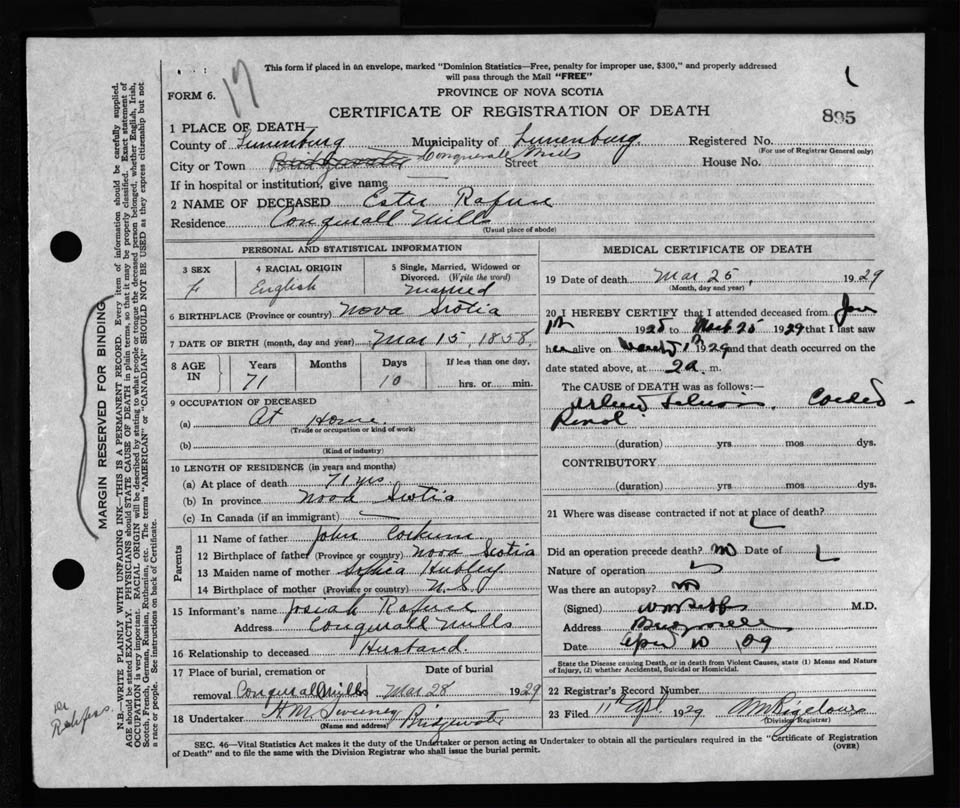 This form if placed in an envelope, marked "Dominion Statistics—Free, penalty for improper use, $300," and properly addressed
will pass through the Mail "FREE"
FORM 6.
17
PROVINCE OF NOVA SCOTIA
CERTIFICATE OF REGISTRATION OF DEATH
895
1 PLACE OF DEATH—
County of Lunenburg Municipality of Lunenburg Registered No.
(For use of Registrar General only)
City or Town Bridgewater Conquerall Mills Street House No.
If in hospital or institution, give name
2 NAME OF DECEASED Ester Rafuse
Residence Conquerall Mills
(Usual place of abode)
PERSONAL AND STATISTICAL INFORMATION
3 SEX 4 RACIAL ORIGIN 5 Single, Married, Widowed or
Divorced. (Write the word)
F English Married
6 BIRTHPLACE (Province or country) Nova Scotia
7 DATE OF BIRTH (month, day and year) Mar 15, 1858
8 AGE IN Years Months Days If less than one day,
71 10 hrs. or min.
9 OCCUPATION OF DECEASED
(a) At Home
(Trade or occupation or kind of work)
(b)
(Kind of industry)
10 LENGTH OF RESIDENCE (in years and months)
(a) At place of death 71 yrs
(b) In province Nova Scotia
(c) In Canada (if an immigrant)
Parents
11 Name of father John Corkum
12 Birthplace of father (Province or country) Nova Scotia
13 Maiden name of mother Hubley
14 Birthplace of mother (Province or country) N.S.
15 Informant's name Josiah Rafuse
Address Conquerall Mills
16 Relationship to deceased Husband.
17 Place of burial, cremation or Date of burial
removal Conquerall Mills Mar 28 1929
18 Undertaker H M Sweeney Bridgewater
(Name and address)
MEDICAL CERTIFICATE OF DEATH
19 Date of death Mar 25, 1929
(Month, day and year)
20 I HEREBY CERTIFY that I attended deceased from Jan
1st 1928 to March 25 1929 that I last saw
her alive on March 1929 and that death occurred on the
date stated above, at 2 a. m.
The CAUSE of DEATH was as follows:—
Cardio-
Renal
(duration) yrs mos dys.
CONTRIBUTORY
(duration) yrs mos dys.
21 Where was disease contracted if not at place of death?
Did an operation precede death? no Date of
Nature of operation
Was there an autopsy? no
(Signed) M.D.
Address
Date 10
State the Disease causing Death, or in death from Violent Causes, state (1) Means and Nature
of Injury, (2) whether Accidental, Suicidal or Homicidal.
22 Registrar's Record Number
23 Filed 11th Apl. 1929
(Division Registrar)
SEC. 46—Vital Statistics Act makes it the duty of the Undertaker or person acting as Undertaker to obtain all the particulars required in the "Certificate of Registration
of Death" and to file the same with the Division Registrar who shall issue the burial permit.
(OVER)
MARGIN RESERVED FOR BINDING
N.B.—WRITE PLAINLY WITH UNFADING INK—THIS IS A PERMANENT RECORD. Every item of information should be carefully supplied.
AGE should be stated EXACTLY. PHYSICIANS should STATE CAUSE OF DEATH in plain terms, so that it may be properly classified. Exact statement of
OCCUPATION is very important. RACIAL ORIGIN will be described by stating to what people or tongue the deceased person belonged, whether English, Irish,
Scotch, French, German, Russian, Ruthenian, etc. The terms "AMERICAN" or "CANADIAN" SHOULD NOT BE USED as they express citizenship but not
a race or people. See instructions on back of Certificate.